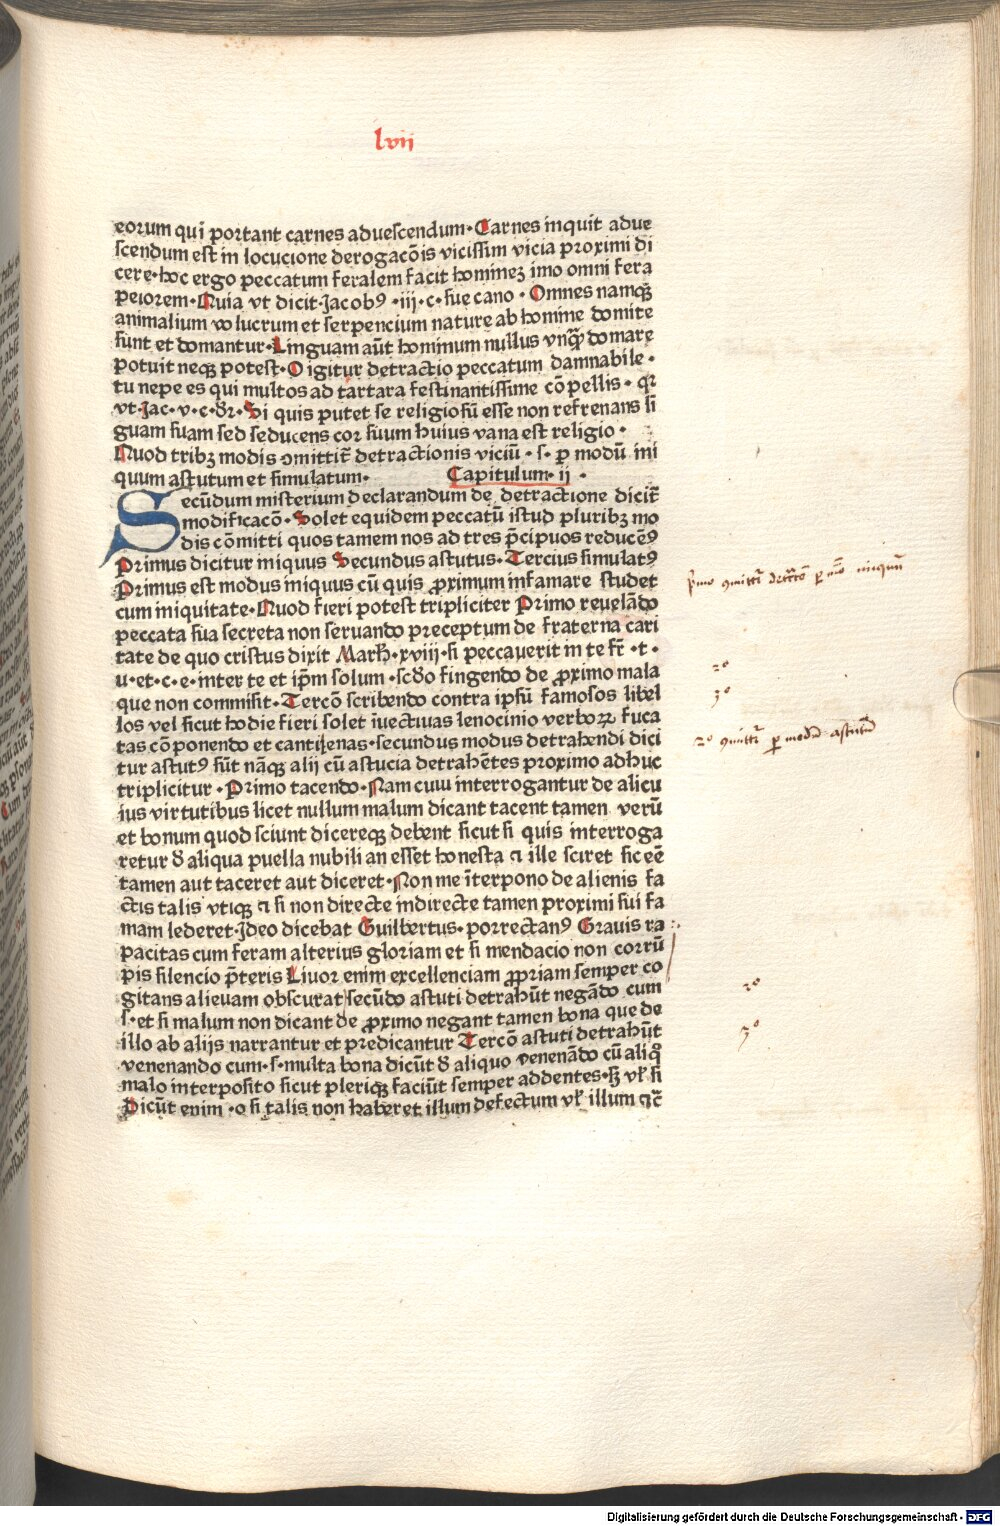 lvii
eorum qui portant carnes ad uescendum · Carnes inquit ad ue
scendum est in locucione derogacōis vicissim vicia proximi di
cere · hoc ergo peccatum feralem facit homineꝫ imo omni fera
peiorem · Quia vt dicit · Jacobꝰ · iii · c · sue cano · Omnes namqꝫ
animalium volucrum et serpencium nature ab homine domite
sunt et domantur · Linguam aūt hominum nullus vnqꝫ domare
potuit neqꝫ potest · O igitur detractio peccatum damnabile ·
tu nepe es qui multos ad tartara festinantissime cōpellis · qꝛ
vt · Jac · v · c · dꝛ · Si quis putet se religiosū esse non refrenans li
guam suam sed seducens cor suum huius vana est religio ·
Quod tribꝫ modis ꝯmittit̄ detractionis viciū · s · ꝑ modū ini
quum astutum et simulatum · Capitulum · ii ·
Secūdum misterium declarandum de detractione dicit̄
modificacō · Solet equidem peccatū istud pluribꝫ mo
dis cōmitti quos tamem nos ad tres p̄cipuos reducēꝰ
Primus dicitur iniquus Secundus astutus · Tercius simulatꝰ
Primus est modus iniquus cū quis ꝓximum infamare studet
cum iniquitate · Quod fieri potest tripliciter Primo reuelādo
peccata sua secreta non seruando preceptum de fraterna cari
tate de quo cristus dixit Math · xviii · si peccauerit in te fr̄ · t ·
u · et · c · e · inter te et ip̄m solum · scdo fingendo de ꝓximo mala
que non commisit · Tercō scribendo contra ipsū famosos libel
los vel sicut hodie fieri solet īuectiuas lenocinio verboꝝ fuca
tas cōponendo et cantilenas · secundus modus detrahendi dici
tur astutꝰ sūt nāqꝫ alij cū astucia detrahētes proximo adhuc
tripliciter · Primo tacendo · Nam cum interrogantur de alicu
ius virtutibus licet nullum malum dicant tacent tamen verū
et bonum quod sciunt dicereqꝫ debent sicut si quis interroga
retur d aliqua puella nubili an esset honesta ⁊ ille sciret sic eē
tamen aut taceret aut diceret · Non me īterpono de alienis fa
ctis talis vtiqꝫ ⁊ si non directe indirecte tamen proximi sui fa
mam lederet · Ideo dicebat Guilbertus · porrectanꝰ Grauis ra
pacitas cum feram alterius gloriam et si mendacio non corrū
pis silencio p̄teris Liuor enim excellenciam ꝓpriam semper co
gitans alieuam obscurat secūdo astuti detrahūt negādo cum
s · et si malum non dicant de ꝓximo negant tamen bona que de
illo ab alijs narrantur et predicantur Tercō astuti detrahūt
venenando cum · s · multa bona dicūt d aliquo venenādo cū aliqͦ
malo interposito sicut pleriqꝫ faciūt semper addentes · sꝫ vl̓ si
Dicūt enim · o si talis non haberet illum defectum vl̓ illum ⁊c̄
2º
3º
2º
3º